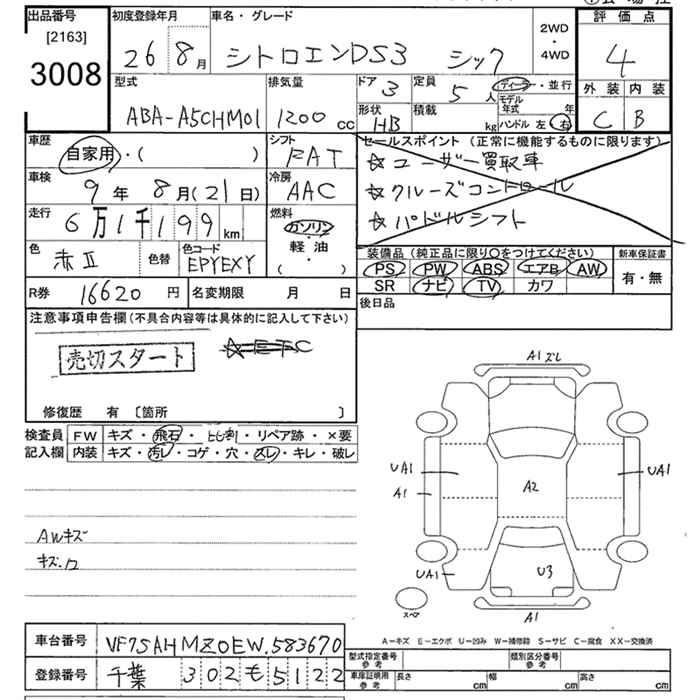 出品番号
[2163]
3008
初度登録年月
26 8月
車名・グレード
シトロエンDS3 シック
2WD
・
4WD
評価点
4
外装 内装
C B
型式
ABA-A5CHM01
排気量
1200 cc
ドア 3
定員 5 人
ディーラー・並行
モデル年式 年
形状 HB
積載 kg
ハンドル 左 右
車歴
自家用・( )
シフト
FAT
セールスポイント (正常に機能するものに限ります)
☆ユーザー買取車
☆クルーズコントロール
☆パドルシフト
車検
9年 8月(21日)
冷房
AAC
走行
6万1千199 km
燃料
ガソリン・
軽油
( ・ )
色
赤Ⅱ
色替
色コード
EPYEXY
装備品 (純正品に限り○をつけてください)
PS PW ABS エアB AW
SR ナビ TV カワ
新車保証書
有・無
R券 16620 円
名変期限 月 日
後日品
注意事項申告欄 (不具合内容等は具体的に記入して下さい)
売切スタート
☆ETC
修復歴 有 〔箇所 〕
検査員
記入欄
FW キズ・飛石・ヒビ割・リペア跡・×要
内装 キズ・汚レ・コゲ・穴・スレ・キレ・破レ
AWキズ
A1ズレ
UA1
A1
A2
UA1
UA1
U3
スペア
A1
A−キズ E−エクボ U−凹み W−補修跡 S−サビ C−腐食 XX−交換済
車台番号 VF7SAHMZ0EW.583670
登録番号 千葉 302 も 5122
型式指定番号
参考
類別区分番号
参考
車庫証明用
参考
長さ cm
幅 cm
高さ cm